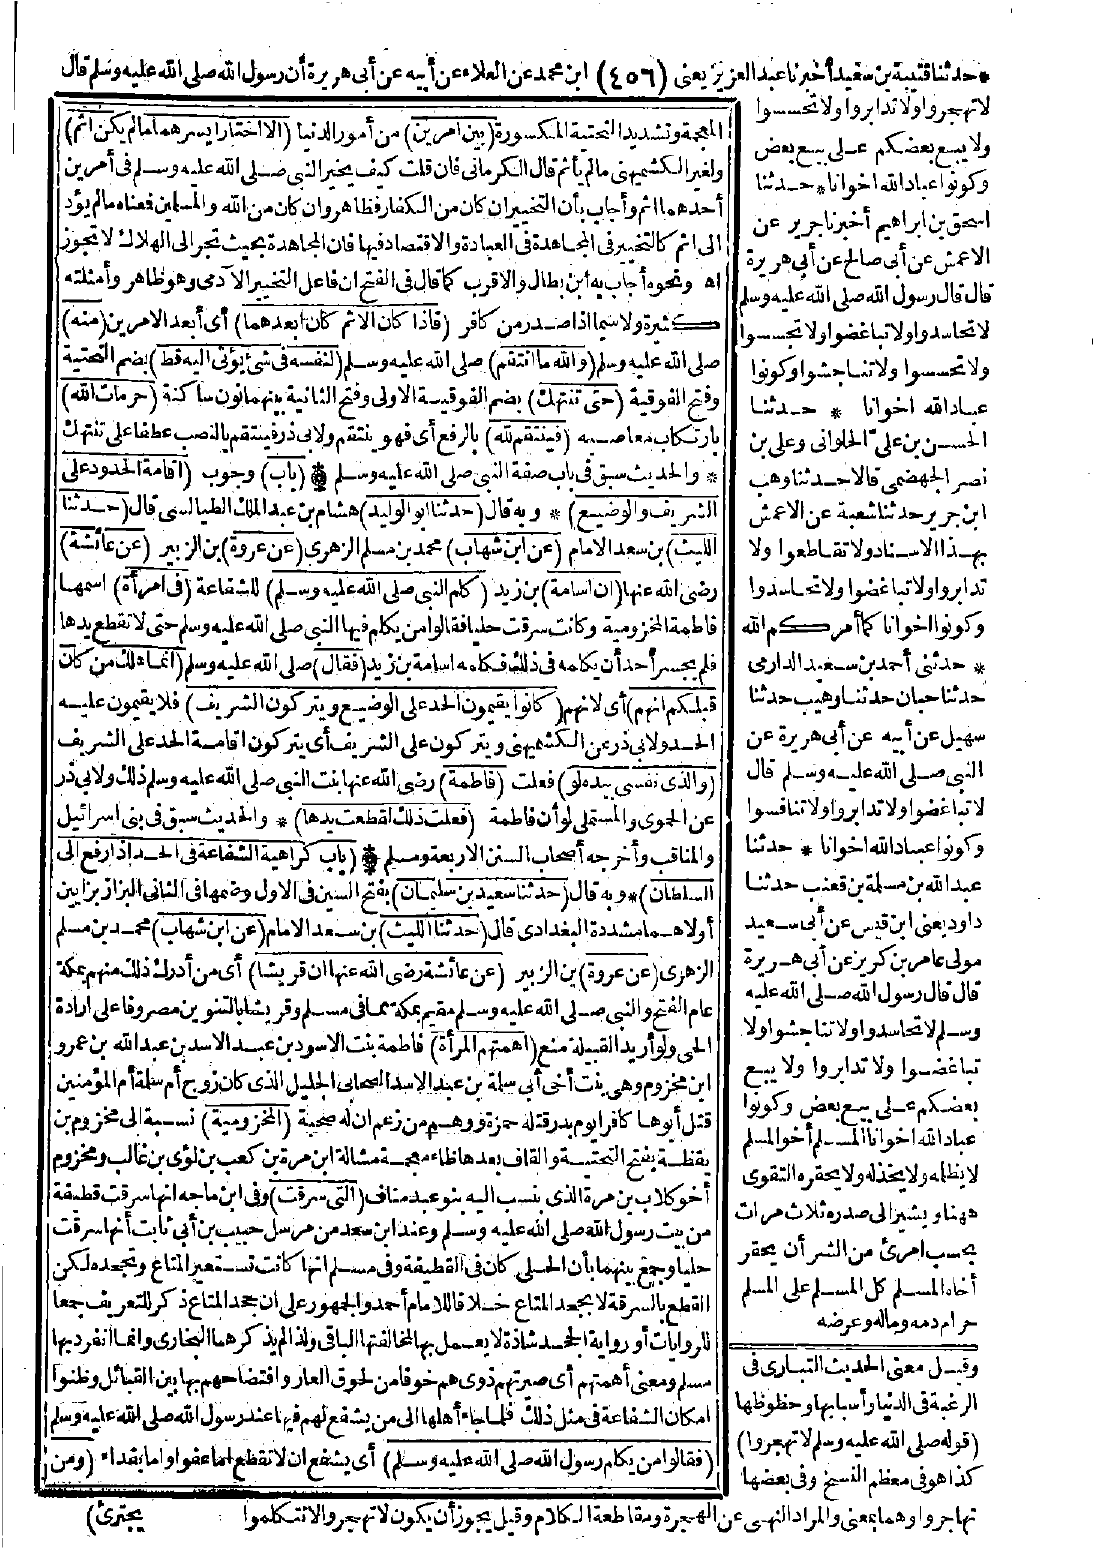 * حدثنا قتيبة بن سعيد أخبرنا عبد العزيز يعنى (٤٥٦) ابن محمد عن العلاء عن أبيه عن أبى هريرة أن رسول الله صلى الله عليه وسلم قال
لا تهجروا ولا تدابروا ولا تحسسوا
ولا يبع بعضكم على بيع بعض
وكونوا عباد الله اخوانا * حدثنا
اسحق بن ابراهيم أخبرنا جرير عن
الاعمش عن أبى صالح عن أبى هريرة
قال قال رسول الله صلى الله عليه وسلم
لا تحاسدوا ولا تباغضوا ولا تجسسوا
ولا تحسسوا ولا تناجشوا وكونوا
عباد الله اخوانا * حدثنا
الحسن بن على الحلوانى وعلى بن
نصر الجهضمى قالا حدثنا وهب
ابن جرير حدثنا شعبة عن الاعمش
بهذا الاسناد ولا تقاطعوا ولا
تدابروا ولا تباغضوا ولا تحاسدوا
وكونوا اخوانا كما أمركم الله
* حدثنى أحمد بن سعيد الدارمى
حدثنا حبان حدثنا وهيب حدثنا
سهيل عن أبيه عن أبى هريرة عن
النبى صلى الله عليه وسلم قال
لا تباغضوا ولا تدابروا ولا تنافسوا
وكونوا عباد الله اخوانا * حدثنا
عبد الله بن مسلمة بن قعنب حدثنا
داود يعنى ابن قيس عن أبى سعيد
مولى عامر بن كريز عن أبى هريرة
قال قال رسول الله صلى الله عليه
وسلم لا تحاسدوا ولا تناجشوا ولا
تباغضوا ولا تدابروا ولا يبع
بعضكم على بيع بعض وكونوا
عباد الله اخوانا المسلم أخو المسلم
لا يظلمه ولا يخذله ولا يحقره التقوى
ههنا ويشير الى صدره ثلاث مرات
بحسب امرئ من الشر أن يحقر
أخاه المسلم كل المسلم على المسلم
حرام دمه وماله وعرضه
وقيل معنى الحديث التبارى فى
الرغبة فى الدنيا وأسبابها وحظوظها
(قوله صلى الله عليه وسلم لا تهجروا)
كذا هو فى معظم النسخ وفى بعضها
تهاجروا وهما بمعنى والمراد النهى عن الهجرة ومقاطعة الكلام وقيل يجوز أن يكون لا تهجروا لا تتكلموا
المعجمة وتشديد التحتية المكسورة (بين امرين) من أمور الدنيا (الا اختار أيسرهما ما لم يكن اثم)
ولغير الكشميهنى ما لم يأثم قال الكرمانى فان قلت كيف يخير النبى صلى الله عليه وسلم فى أمرين
أحدهما اثم وأجاب بأن التخيير ان كان من الكفار فظاهر وان كان من الله والمسلمين فمعناه ما لم يؤد
الى اثم كالتخيير فى المجاهدة فى العبادة والاقتصاد فيها فان المجاهدة بحيث تجر الى الهلاك لا تجوز
اه ونحوه أجاب به ابن بطال والاقرب كما قال فى الفتح ان فاعل التخيير الآدمى وهو ظاهر وأمثلته
كثيرة ولا سيما اذا صدر من كافر (فاذا كان الاثم كان ابعدهما) أى أبعد الامرين (منه)
صلى الله عليه وسلم (والله ما انتقم) صلى الله عليه وسلم (لنفسه فى شئ يؤتى اليه قط) بضم التحتية
وفتح الفوقية (حتى تنتهك) بضم الفوقية الاولى وفتح الثانية بينهما نون ساكنة (حرمات الله)
بارتكاب معاصيه (فينتقم لله) بالرفع أى فهو ينتقم ولابى ذر فينتقم بالنصب عطفا على تنتهك
* والحديث سبق فى باب صفة النبى صلى الله عليه وسلم * (باب) وجوب (اقامة الحدود على
الشريف والوضيع) * وبه قال (حدثنا ابو الوليد) هشام بن عبد الملك الطيالسى قال (حدثنا
الليث) بن سعد الامام (عن ابن شهاب) محمد بن مسلم الزهرى (عن عروة) بن الزبير (عن عائشة)
رضى الله عنها (ان اسامة) بن زيد (كلم النبى صلى الله عليه وسلم) للشفاعة (فى امرأة) اسمها
فاطمة المخزومية وكانت سرقت حليا فقالوا من يكلم فيها النبى صلى الله عليه وسلم حتى لا تقطع يدها
فلم يجسر أحد أن يكلمه فى ذلك فكلمه اسامة بن زيد (فقال) صلى الله عليه وسلم (انما هلك من كان
قبلكم انهم) أى لانهم (كانوا يقيمون الحد على الوضيع ويتركون الشريف) فلا يقيمون عليه
الحد ولابى ذر عن الكشميهنى ويتركون على الشريف أى يتركون اقامة الحد على الشريف
(والذى نفسى بيده لو) فعلت (فاطمة) رضى الله عنها بنت النبى صلى الله عليه وسلم ذلك ولابى ذر
عن الحموى والمستملى لو أن فاطمة (فعلت ذلك لقطعت يدها) * والحديث سبق فى بنى اسرائيل
والمناقب وأخرجه أصحاب السنن الاربعة ومسلم * (باب كراهية الشفاعة فى الحد اذا رفع الى
السلطان) * وبه قال (حدثنا سعيد بن سليمان) بفتح السين فى الاول وضمها فى الثانى البزاز بزايين
أولاهما مشددة البغدادى قال (حدثنا الليث) بن سعد الامام (عن ابن شهاب) محمد بن مسلم
الزهرى (عن عروة) بن الزبير (عن عائشة رضى الله عنها ان قريشا) أى من أدرك ذلك منهم بمكة
عام الفتح والنبى صلى الله عليه وسلم مقيم بمكة كما فى مسلم وقريشا بالتنوين مصروفا على ارادة
الحى ولو أريد القبيلة منع (أهمتهم المرأة) فاطمة بنت الاسود بن عبد الاسد بن عبد الله بن عمرو
ابن مخزوم وهى بنت أخى أبى سلمة بن عبد الاسد الصحابى الجليل الذى كان زوج أم سلمة أم المؤمنين
قتل أبوها كافرا يوم بدر قتله حمزة ووهم من زعم ان له صحبة (المخزومية) نسبة الى مخزوم بن
يقظة بفتح التحتية والقاف بعدها ظاء معجمة مشالة ابن مرة بن كعب بن لؤى بن غالب ومخزوم
أخو كلاب بن مرة الذى ينسب اليه بنو عبد مناف (التى سرقت) وفى ابن ماجه انها سرقت قطيفة
من بيت رسول الله صلى الله عليه وسلم وعند ابن سعد من مرسل حبيب بن أبى ثابت أنها سرقت
حليا وجمع بينهما بأن الحلى كان فى القطيفة وفى مسلم انها كانت تستعير المتاع وتجحده لكن
القطع بالسرقة لا بجحد المتاع خلافا للامام أحمد والجمهور على ان جحد المتاع ذكر للتعريف جمعا
للروايات أو رواية الجحد شاذة لا يعمل بها لمخالفتها الباقى ولذا لم يذكرها البخارى وانما انفرد بها
مسلم ومعنى أهمتهم أى صيرتهم ذوى هم خوفا من لحوق العار وافتضاحهم بها بين القبائل وظنوا
امكان الشفاعة فى مثل ذلك فلما جاء أهلها الى من يشفع لهم فيها عند رسول الله صلى الله عليه وسلم
(فقالوا من يكلم رسول الله صلى الله عليه وسلم) أى يشفع ان لا تقطع اما عفوا واما بفداء (ومن
يجترئ)